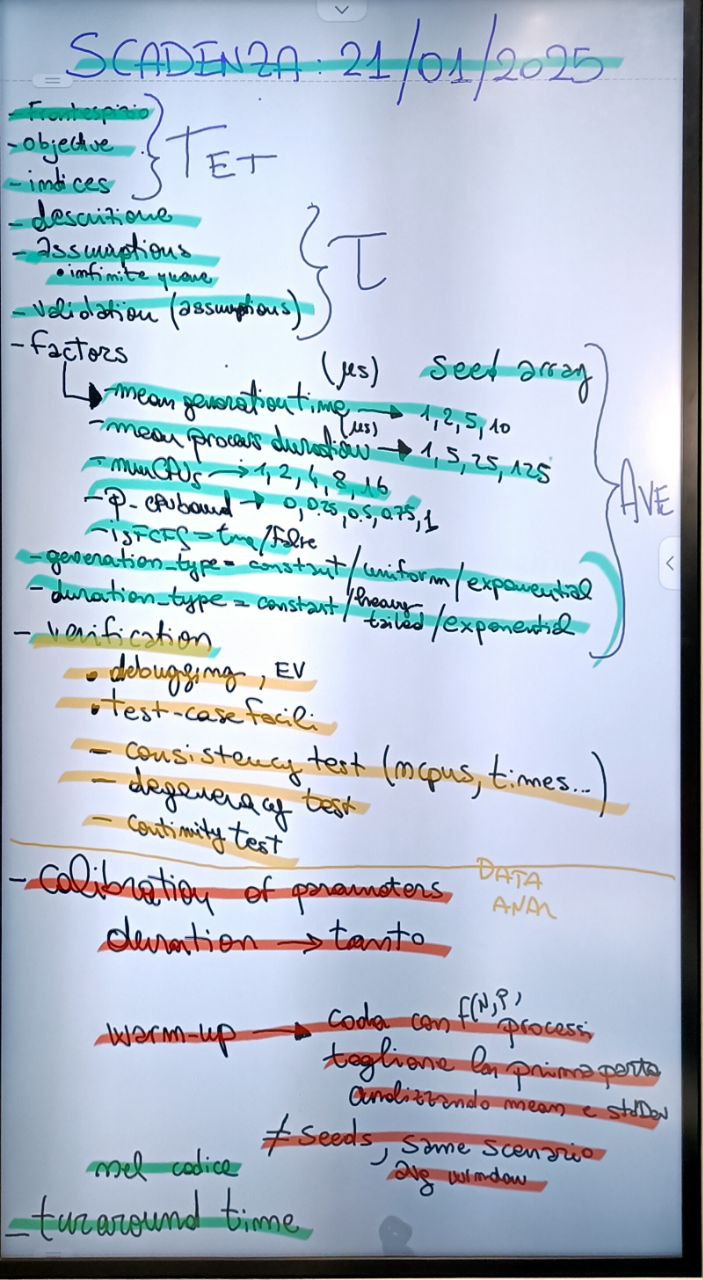 SCADENZA: 21/01/2025
- Frontespizio
- objective
- indices
TET
- descrizione
- assumptions
• infinite queue
- validation (assumptions)
T
- factors
(μs) Seed array
- mean generation time → 1, 2, 5, 10
(μs)
- mean process duration → 1, 5, 25, 125
- numCPUs → 1, 2, 4, 8, 16
- p-cpubound → 0, 0.25, 0.5, 0.75, 1
- isFCFS = true/false
- generation_type = constant/uniform/exponential
- duration_type = constant/heavy tailed/exponential
AVE
- verification
• debugging, EV
• test-case facili
- consistency test (ncpus, times...)
- degeneracy test
- continuity test
DATA
ANAL
- calibration of parameters
duration → tanto
warm-up → coda con f(N,P) processi
togliere la prima parte
analizzando mean e stdDev
≠ seeds, same scenario
avg window
nel codice
- turaround time